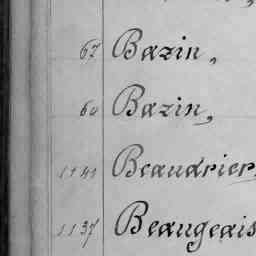 67 Bazin,
60 Bazin,
1141 Beaudrier,
1137 Beaugeais